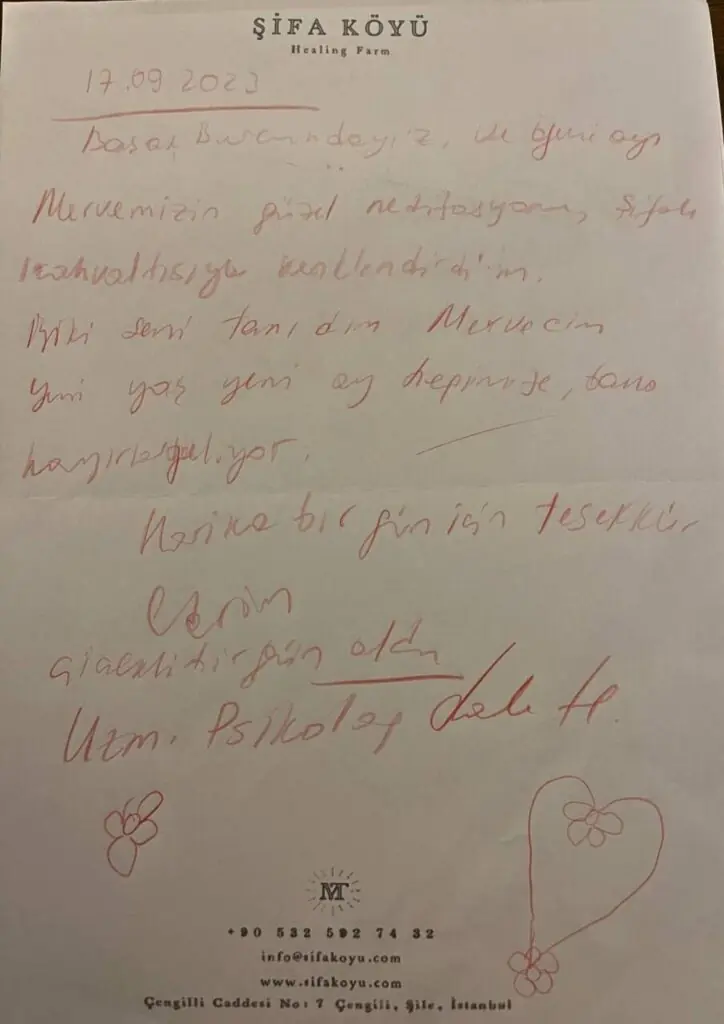 ŞİFA KÖYÜ
Healing Farm
17.09 2023
Başak Burcundayız, ve
Mervemizin güzel meditasyonu, şifalı
kahvaltısıyla renklendirdim.
İyiki seni tanıdım Mervecim
yeni yaş yeni ay hepimize, bana
hayırla geliyor.
Harika bir gün için teşekkür
ederim
çiçekli bir gün oldu
Uzm. Psikolog
MT
+90 532 592 74 32
info@sifakoyu.com
www.sifakoyu.com
Çengilli Caddesi No: 7 Çengili, Şile, İstanbul